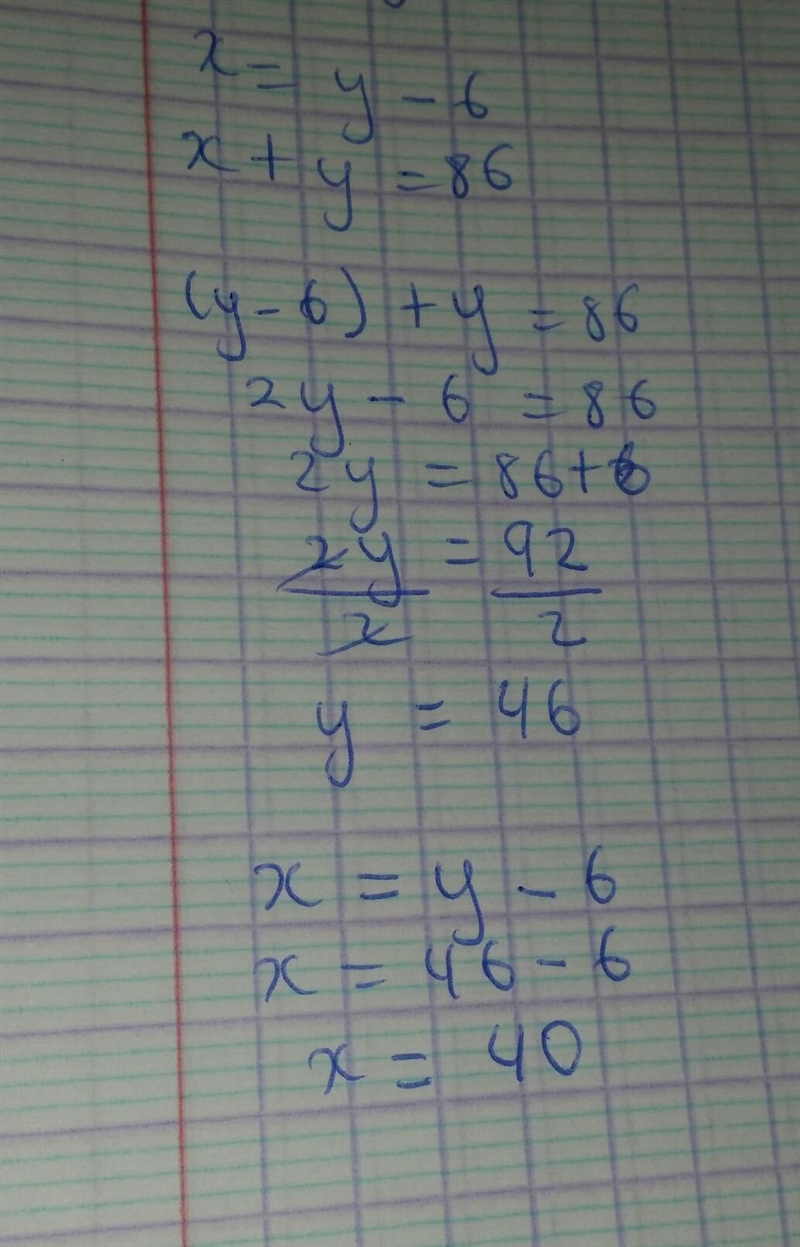 x = y - 6
x + y = 86
(y - 6) + y = 86
2y - 6 = 86
2y = 86 + 6
2y/2 = 92/2
y = 46
x = y - 6
x = 46 - 6
x = 40